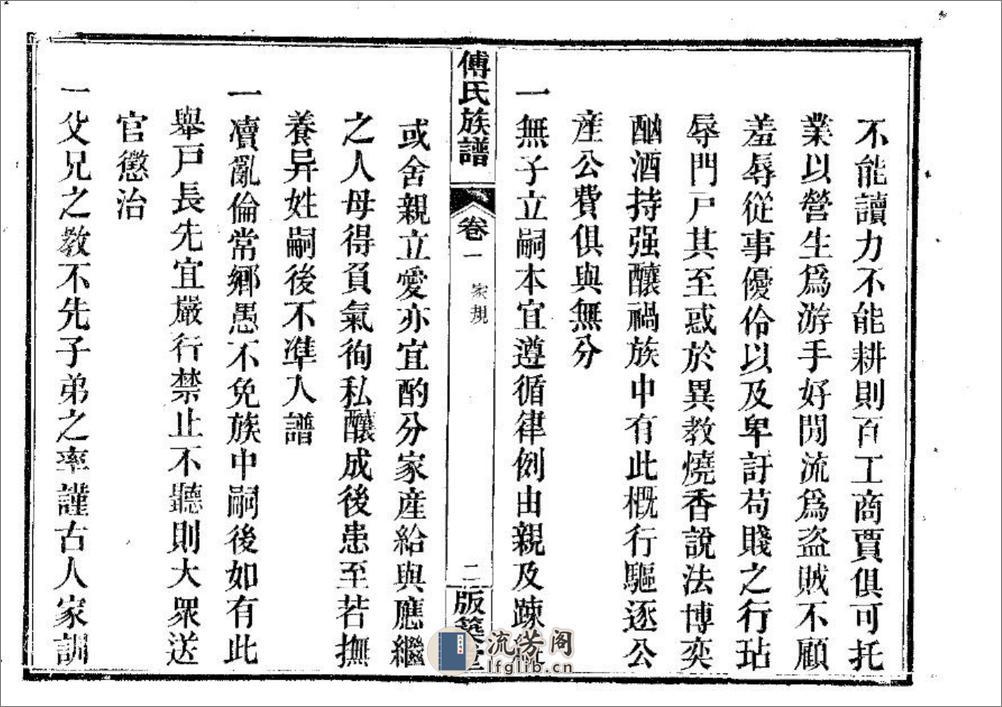 不能讀力不能耕則百工商賈俱可托
業以營生爲游手好閒流爲盜賊不顧
羞辱從事優伶以及卑訐苟賤之行玷
辱門戸其至惑於異教燒香說法博奕
酗酒持强釀禍族中有此概行驅逐公
産公費俱與無分
一無子立嗣本宜遵循律例由親及踈
或舍親立愛亦宜酌分家産給與應繼
之人毋得負氣徇私釀成後患至若撫
養异姓嗣後不凖入譜
一凟亂倫常鄉愚不免族中嗣後如有此
舉戸長先宜嚴行禁止不聽則大衆送
官懲治
一父兄之教不先子弟之率謹古人家訓
傅氏族譜
卷一
家規
二
版築堂
流芳阁
lfglib.cn